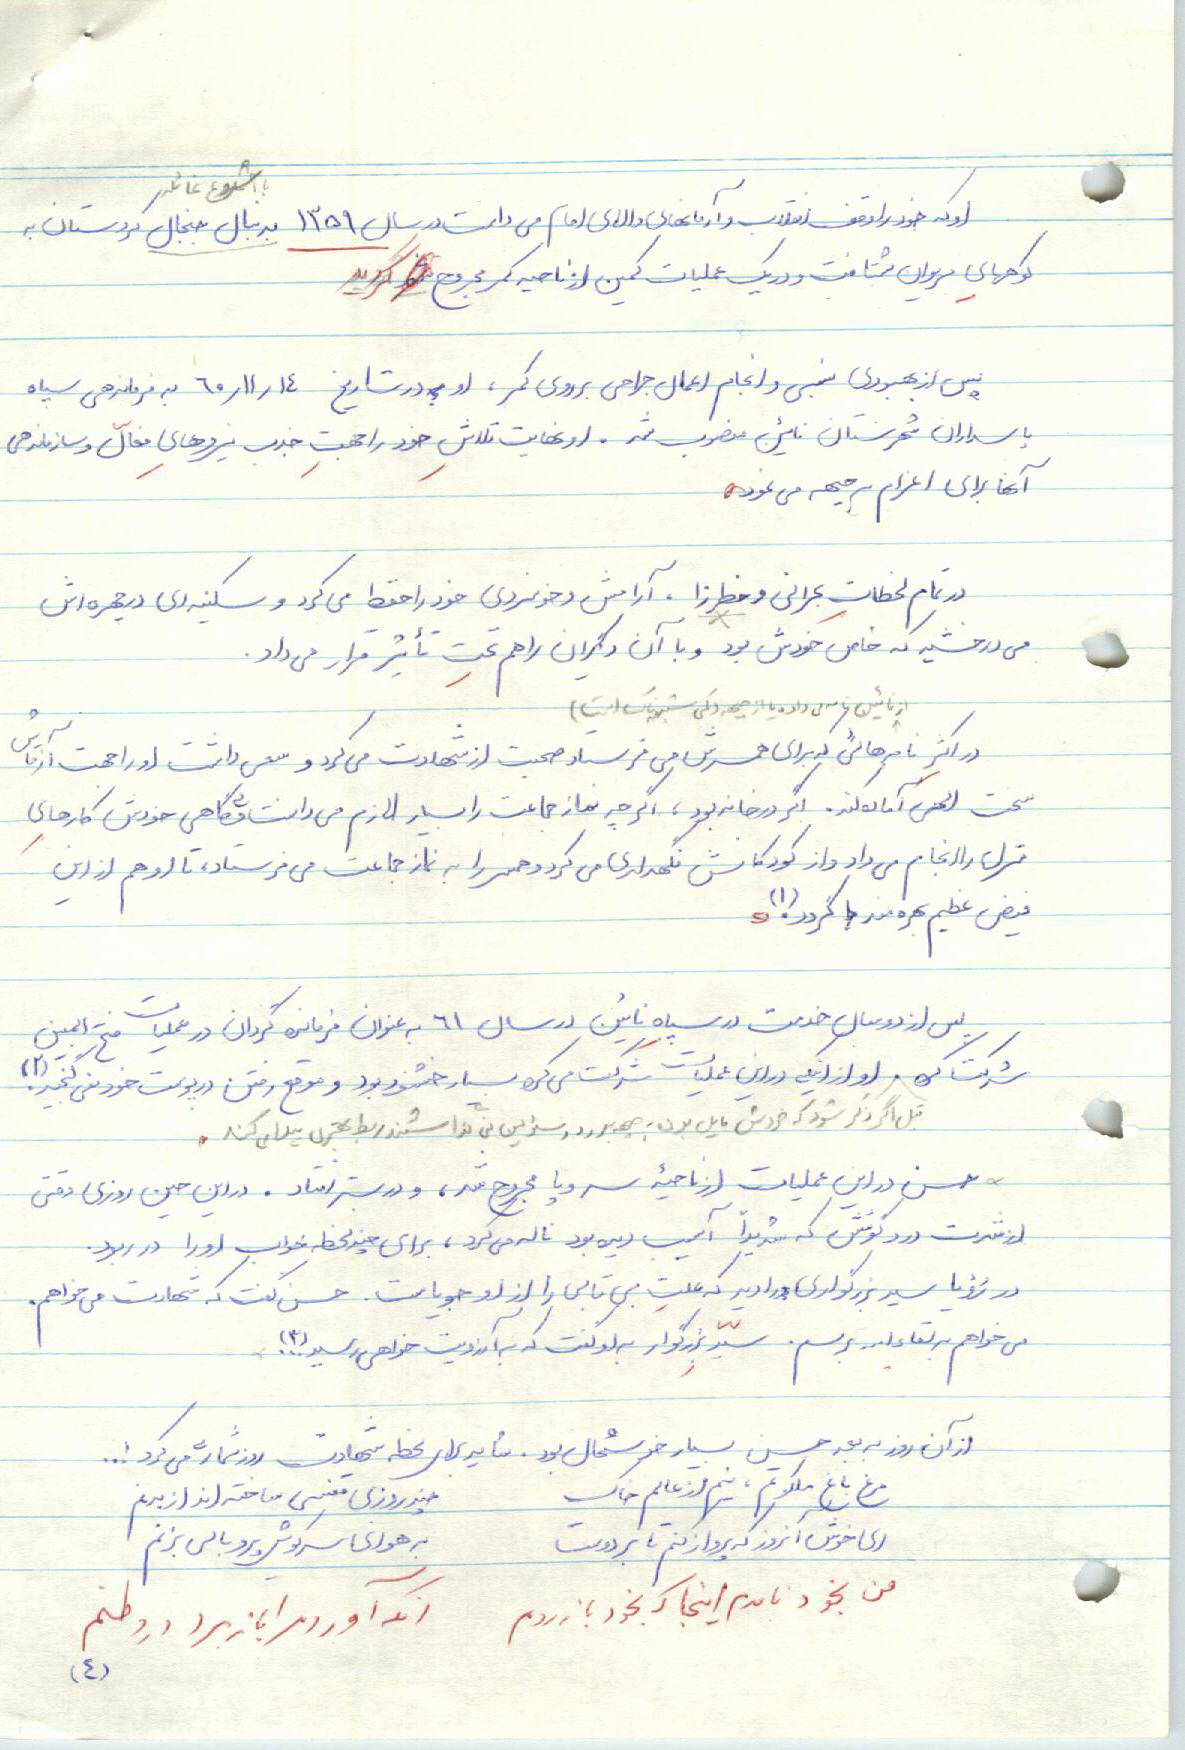 با شروع غائله
او که خود را وقف انقلاب و آرمانهای والای امام می دانست در سال ۱۳۵۹ بدنبال جنجال کردستان به
کوههای مریوان شتافت و در یک عملیات کمین از ناحیه کمر مجروح گردید
پس از بهبودی نسبی و انجام اعمال جراحی بر روی کمر، او در تاریخ ۶۰٫۱۱٫۱۴ به فرماندهی سپاه
پاسداران شهرستان نائین منصوب شد. او نهایت تلاشِ خود را جهتِ جذب نیروهایِ فعّال و سازماندهی
آنها برای اعزام به جبهه می نمود.
در تمام لحظاتِ بحرانی و خطرزا، آرامش و خونسردی خود را حفظ می کرد و سکینه ای در چهره اش
می درخشید که خاص خودش بود و با آن دیگران را هم تحتِ تأثیر قرار می داد.
از نائین نامه می داده یا از جبهه
در اکثر نامه هائی که برای همسرش می فرستاد صحبت از شهادت می کرد و سعی داشت او را جهت آزمایش
سخت الهی آماده کند. اگر در خانه بود، اگرچه نماز جماعت را بسیار لازم می دانست گاهی خودش کارهایِ
منزل را انجام می داد و از کودکانش نگهداری می کرد و همسر را به نماز جماعت می فرستاد، تا او هم از این
فیض عظیم بهره مند گردد.(۱)
پس از دو سال خدمت در سپاهِ نائین در سال ۶۱ به عنوان فرمانده گردان در عملیات فتح المبین
شرکت کرد. او از اینکه در این عملیات شرکت می کرد بسیار خشنود بود و موقع رفتن در پوست خود نمی گنجید.(۲)
قبل اگر ذکر شود که خودش مایل بوده به جبهه برود و مسئولین نمی گذاشتند ربط بهتری پیدا می کند.
حسن در این عملیات از ناحیهٔ سر و پا مجروح شد، و در بستر افتاد. در این حین روزی وقتی
از شدت درد گوشش که شدیداً آسیب دیده بود ناله می کرد، برای چند لحظه خواب او را در ربود.
در رؤیا سید بزرگواری را دید که علتِ بی تابی را از او جویاست. حسن گفت که شهادت می خواهم.
می خواهم به لقاء الله برسم. سیّد بزرگوار به او گفت که به آرزویت خواهی رسید.(۳)
از آن روز به بعد حسن بسیار خوشحال بود. شاید برای لحظه شهادت روزشماری می کرد!...
مرغ باغ ملکوتم، نیم از عالم خاک چند روزی قفسی ساخته اند از بدنم
ای خوش آنروز که پرواز کنم تا بر دوست به هوای سر کویش پر و بالی بزنم
من بخود نامدم اینجا که بخود باز روم آنکه آورد مرا باز برد در وطنم
(٤)